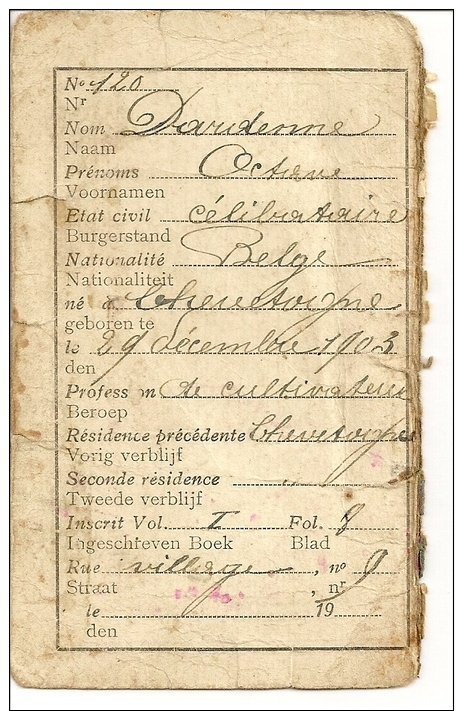 No 120
Nr
Nom Dardenne
Naam
Prénoms Octave
Voornamen
Etat civil célibataire
Burgerstand
Nationalité Belge
Nationaliteit
né à Chevetogne
geboren te
le 29 décembre 1903
den
Profess on de cultivateur
Beroep
Résidence précédente Chevetogne
Vorig verblijf
Seconde résidence "
Tweede verblijf
Inscrit Vol. I Fol. 9
Ingeschreven Boek Blad
Rue village , no 9
Straat , nr
le 19
den